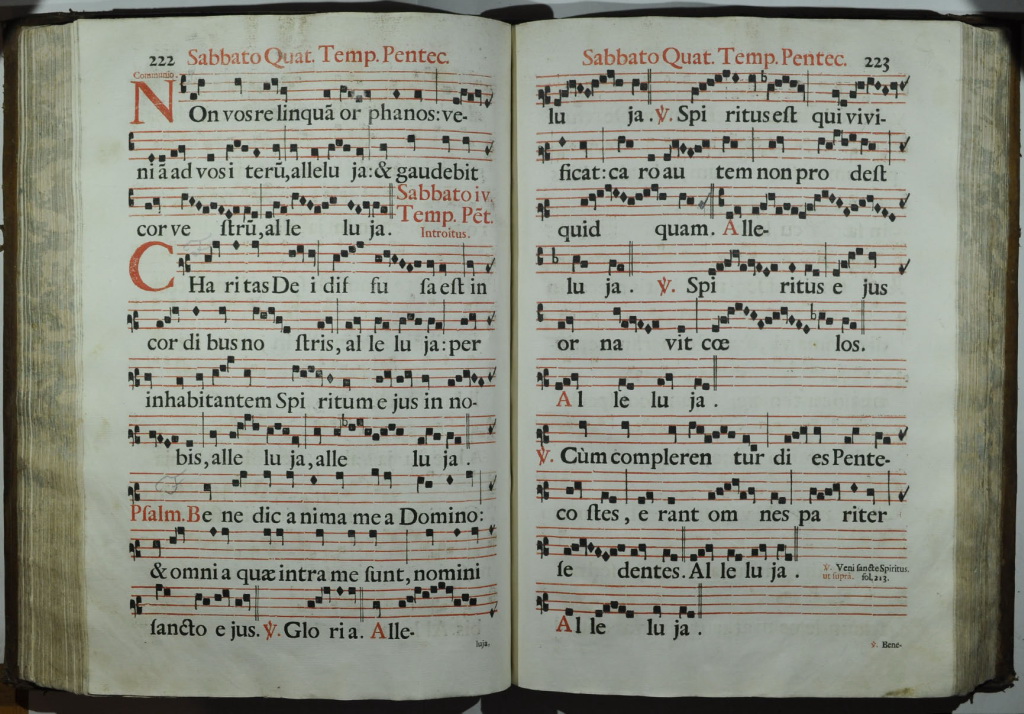 222 Sabbato Quat. Temp. Pentec.
Communio.
NOn vos re linquā or phanos: ve-
ni ā ad vos i terū, allelu ja: & gaudebit
cor ve ſtrū, al le lu ja.
Sabbato iv.
Temp. Pēt.
Introitus.
CHa ri tas De i dif fu ſa eſt in
cor di bus no ſtris, al le lu ja: per
inhabitantem Spi ritum e jus in no-
bis, alle lu ja, alle lu ja.
Pſalm. Be ne dic a nima me a Domino:
& omni a quæ intra me ſunt, nomini
ſancto e jus. ℣. Glo ri a. Alle-
luja.
Sabbato Quat. Temp. Pentec. 223
lu ja. ℣. Spi ritus eſt qui vivi-
ficat: ca ro au tem non pro deſt
quid quam. Alle-
lu ja. ℣. Spi ritus e jus
or na vit cœ los.
Al le lu ja.
℣. Cùm compleren tur di es Pente-
co ſtes, e rant om nes pa riter
ſe dentes. Al le lu ja.
℣. Veni ſancte Spiritus.
ut ſuprà. fol. 213.
Al le lu ja.
℣. Bene-